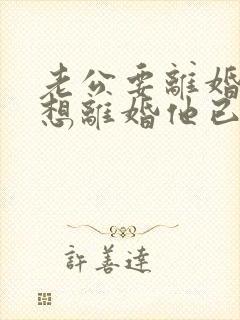 老公要離婚
想離婚他已
許善達